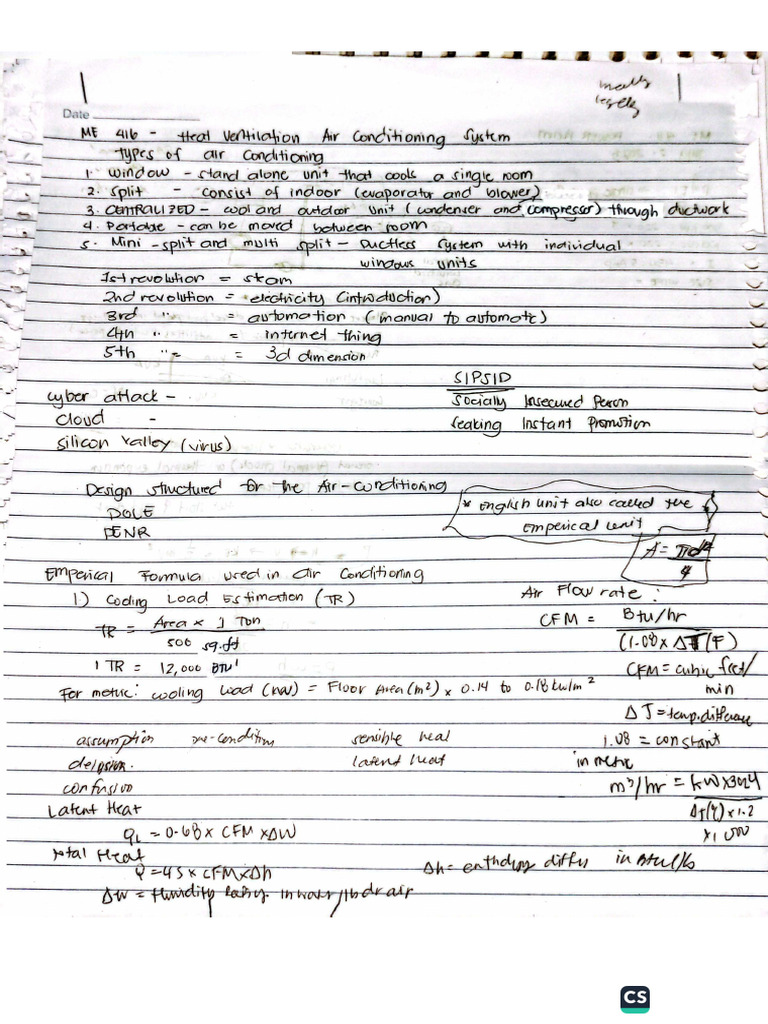 Date
ME 416 - Heat Ventilation Air Conditioning System
Types of air conditioning
1. window - stand alone unit that cools a single room
2. split - consist of indoor (evaporator and blower)
3. CENTRALIZED - cool and outdoor unit (condenser and compressor) through ductwork
4. Portable - can be moved between room
5. Mini-split and multi split - Ductless system with individual
windows units
1st revolution = steam
2nd revolution = electricity (introduction)
3rd " = automation (manual to automate)
4th " = internet thing
5th " = = 3d dimension
SIPSID
cyber attack -
Socially Insecured Person
cloud -
Seaking Instant Promotion
silicon valley (virus)
Design structured for the Air-conditioning
* English unit also called the
Emperical unit
DOLE
DENR
A = πd²
4
Emperical Formula used in air conditioning
1.) Cooling Load Estimation (TR)
Air Flow rate:
TR = Area x 1 Ton
500 sq.ft
CFM = Btu/hr
(1.08 x ΔT (F)
1 TR = 12,000 BTU
CFM = cubic feet/
min
For metric: cooling load (kW) = Floor Area (m²) x 0.14 to 0.18 kw/m²
ΔT = temp. difference
assumption pre-condition sensible heat
1.08 = constant
delusion. latent heat
in metric
confusion
m³/hr = kW x 3024
ΔT(°C) x 1.2
x 1000
Latent Heat
qL = 0.68 x CFM x ΔW
total Heat
Q = 4.5 x CFM x Δh
Δh = enthalpy in Btu/lb
ΔW = Humidity in air
CS